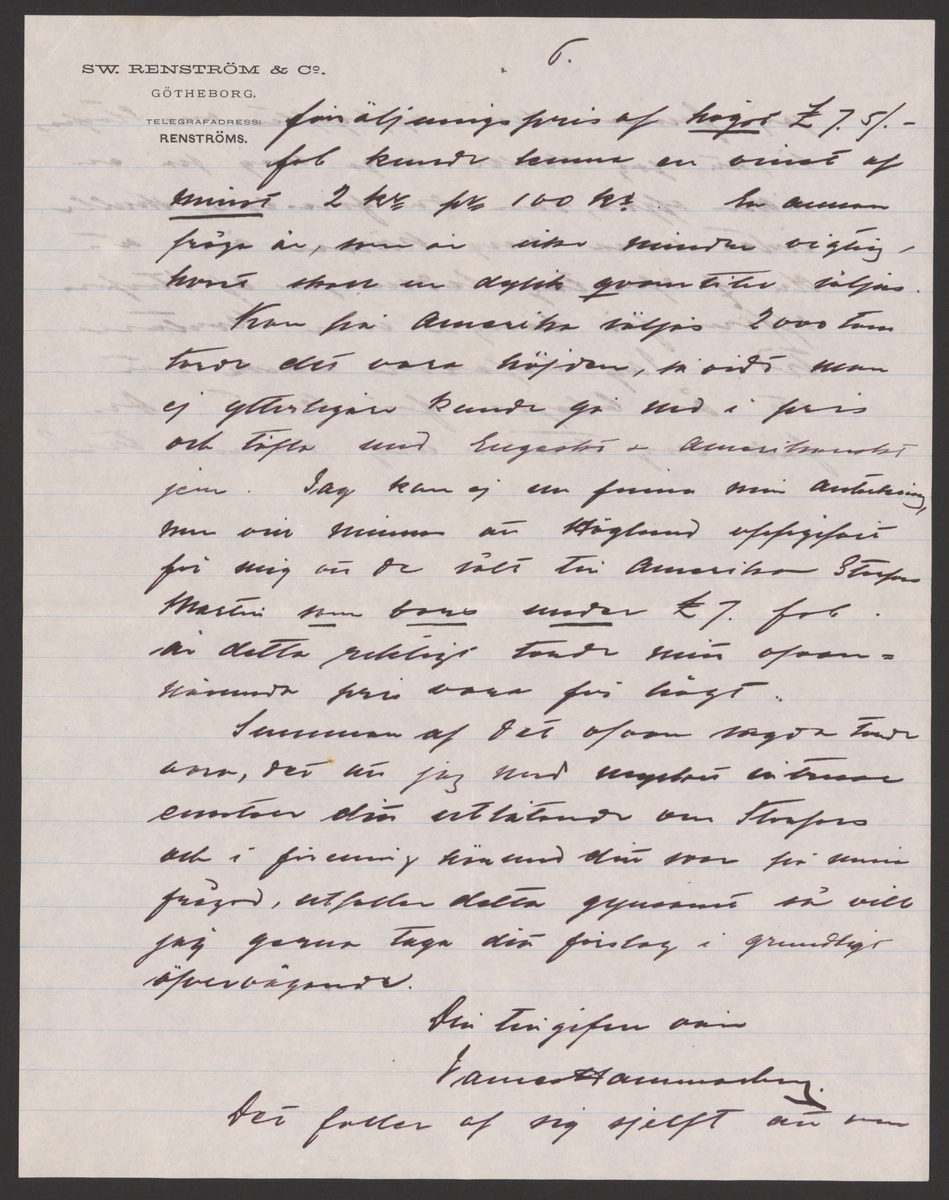 6.
SW. RENSTRÖM & Co.
GÖTHEBORG.
TELEGRAFADRESS:
RENSTRÖMS.
försäljningspris af högst £ 7.5/.-
fob kunde lemna en vinst af
minst 2 kr pr 100 Ko. En annan
fråga är, som är icke mindre vigtig,
hvart skall en dylik qvantitet säljas.
Kan på Amerika säljas 2000 tons
torde det vara höjden, så vidt man
ej ytterligare kunde gå ned i pris
och täfla med Engelskt & Amerikanskt
jern. Jag kan ej nu finna min anteckning,
men vill minnas att Höglund uppgifvit
för mig att de sålt till Amerika Storfors
Martin som bars under £ 7. fob.
är detta riktigt torde mitt ofvan-
nämnda pris vara för högt.
Summan af det ofvan sagda torde
vara, det att jag med mycket intresse
emotser ditt utlåtande om Storfors
och i förening härmed ditt svar på mina
frågor, utfaller detta gynsamt så vill
jag gerna taga ditt förslag i grundligt
öfvervägande.
Din tillgifven vän
James Hammarberg.
Det faller af sig sjelft att om